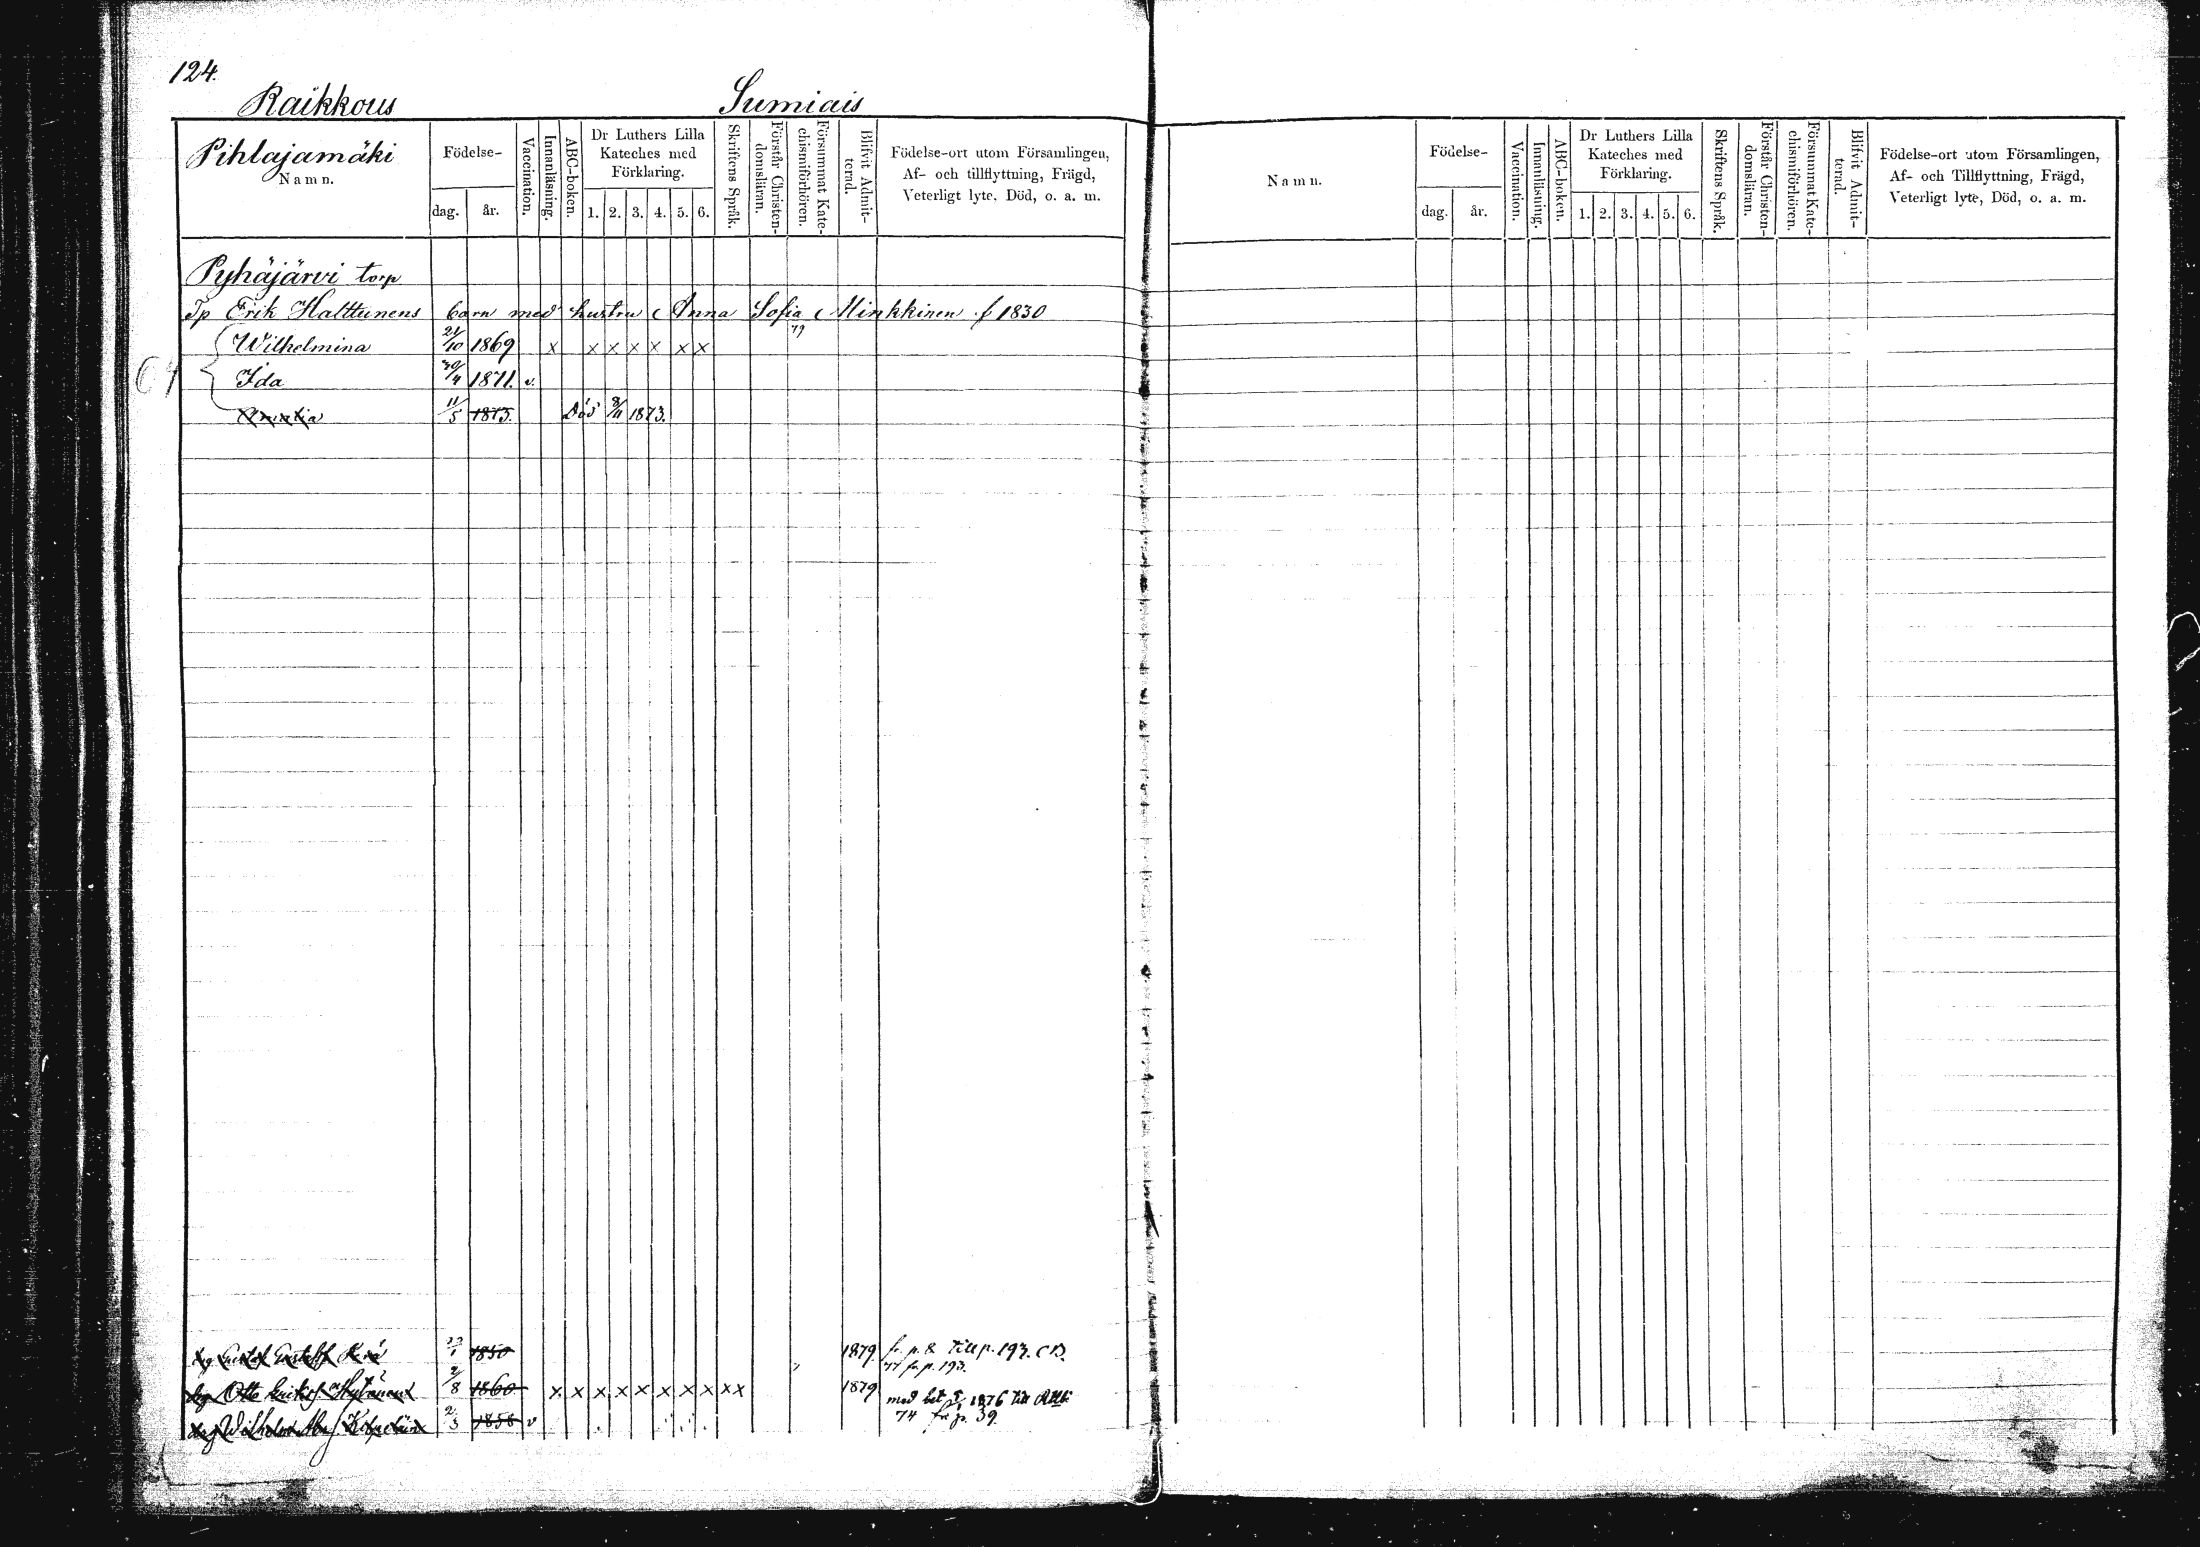 124.
Raikkous Sumiais
Pihlajamäki
Namn.
Födelse-
dag. år.
Vaccination.
Innanläsning.
ABC-boken.
Dr Luthers Lilla
Kateches med
Förklaring.
1. 2. 3. 4. 5. 6.
Skriftens Språk.
Förstår Christen-
domsläran.
Försummat Kate-
chismiförhören.
Blifvit Admit-
terad.
Födelse-ort utom Församlingen,
Af- och tillflyttning, Frägd,
Veterligt lyte, Död, o. a. m.
Pyhäjärvi torp
Tp Erik Halttunens barn med hustru Anna Sofia Minkkinen f 1830
79
Wilhelmina 21/10 1869 x x x x x x x
Ida 30/4 1871. v.
11/5 1873. Död 8/11 1873.
1850 1879. fr. p. 8 Till p. 193. CB.
77 fr. p. 193.
Otto 2/8 1860 x x x x x x x x x x x 1879.
med bet 1876 till
2/3 1858 v 74 fr p. 39.
Namn.
Födelse-
dag. år.
Vaccination.
Innanläsning.
ABC-boken.
Dr Luthers Lilla
Kateches med
Förklaring.
1. 2. 3. 4. 5. 6.
Skriftens Språk.
Förstår Christen-
domsläran.
Försummat Kate-
chismiförhören.
Blifvit Admit-
terad.
Födelse-ort utom Församlingen,
Af- och Tillflyttning, Frägd,
Veterligt lyte, Död, o. a. m.